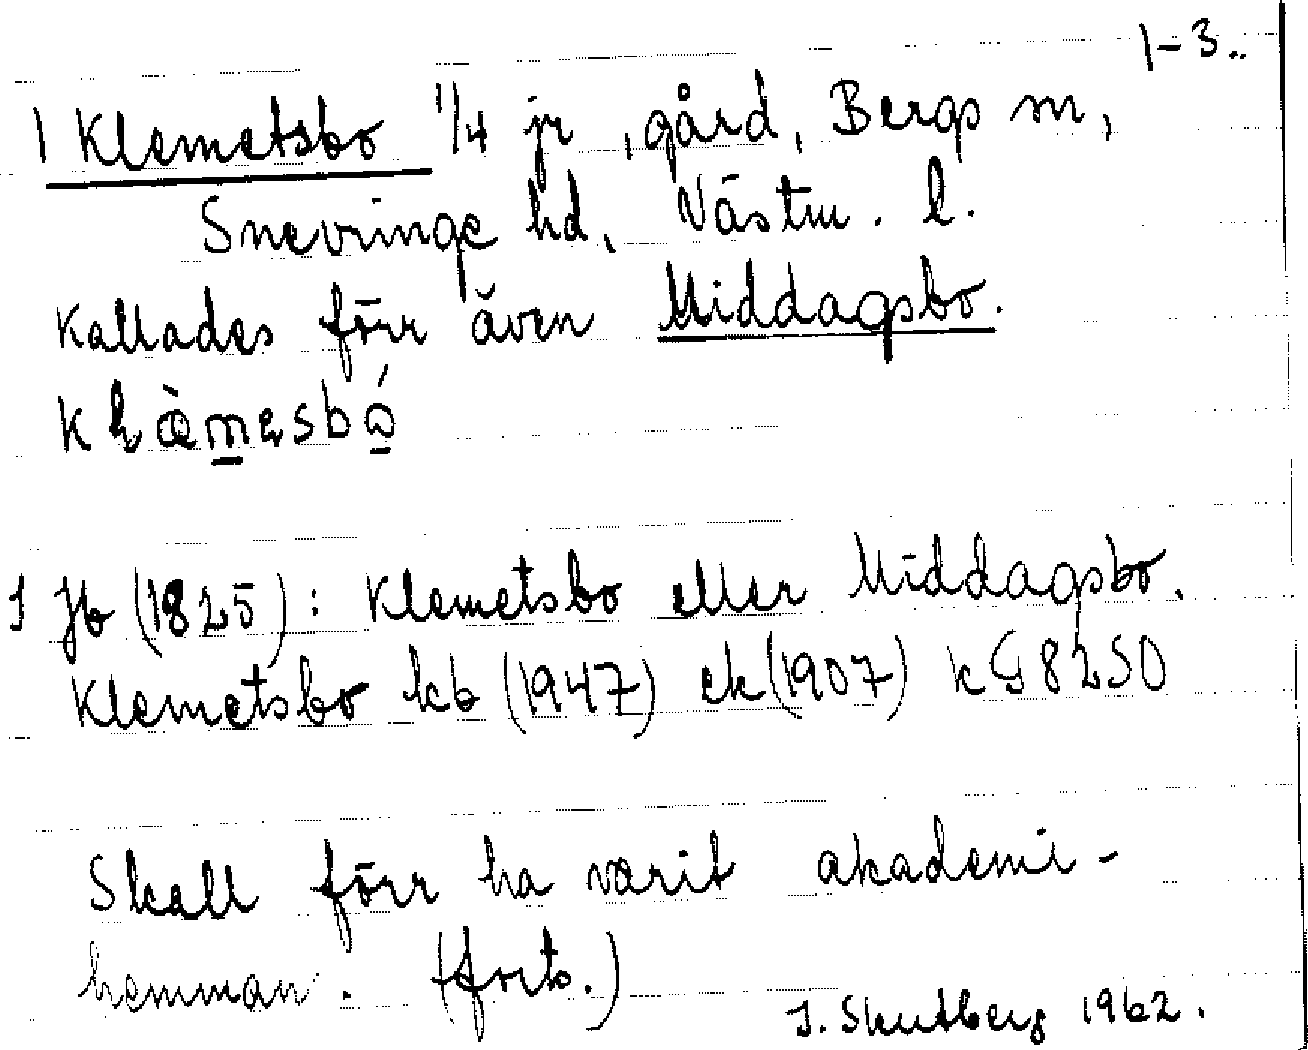 1-3..
1 Klemetsbo 1/4 jr, gård, Bergs sn,
Snevringe hd, Västm. l.
Kallades förr även Middagsbo.
I Jb (1825): Klemetsbo eller Middagsbo.
Klemetsbo kb (1947) ek (1907) kG 8250
Skall förr ha varit akademi-
hemman. (forts.)
1962.